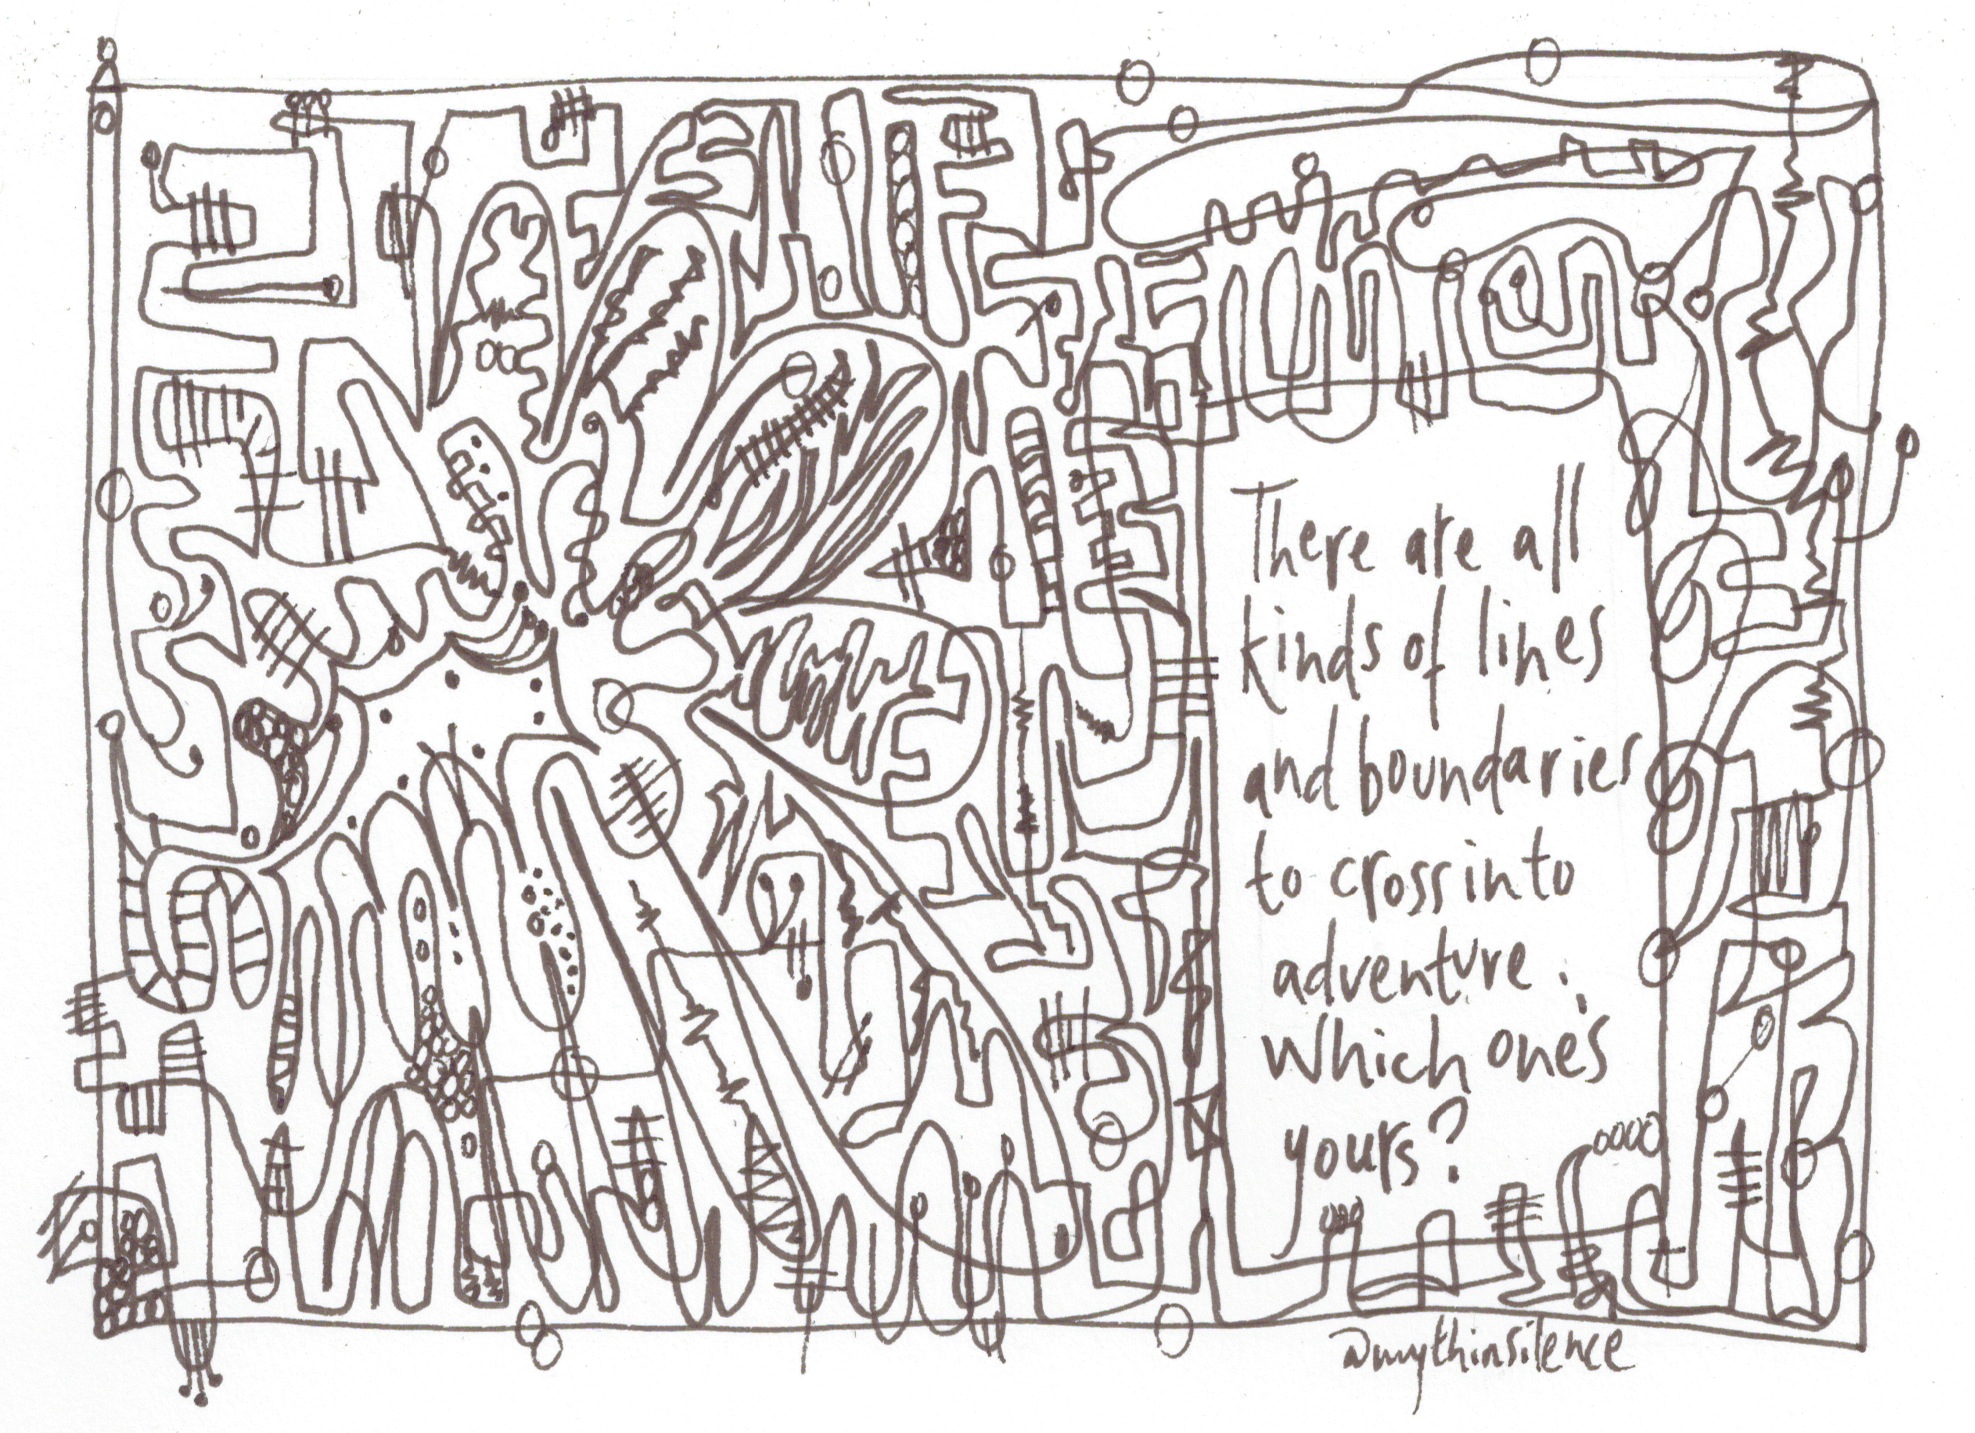 There are all
kinds of lines
and boundaries
to cross into
adventure.
Which one's
yours?
@mythinsilence